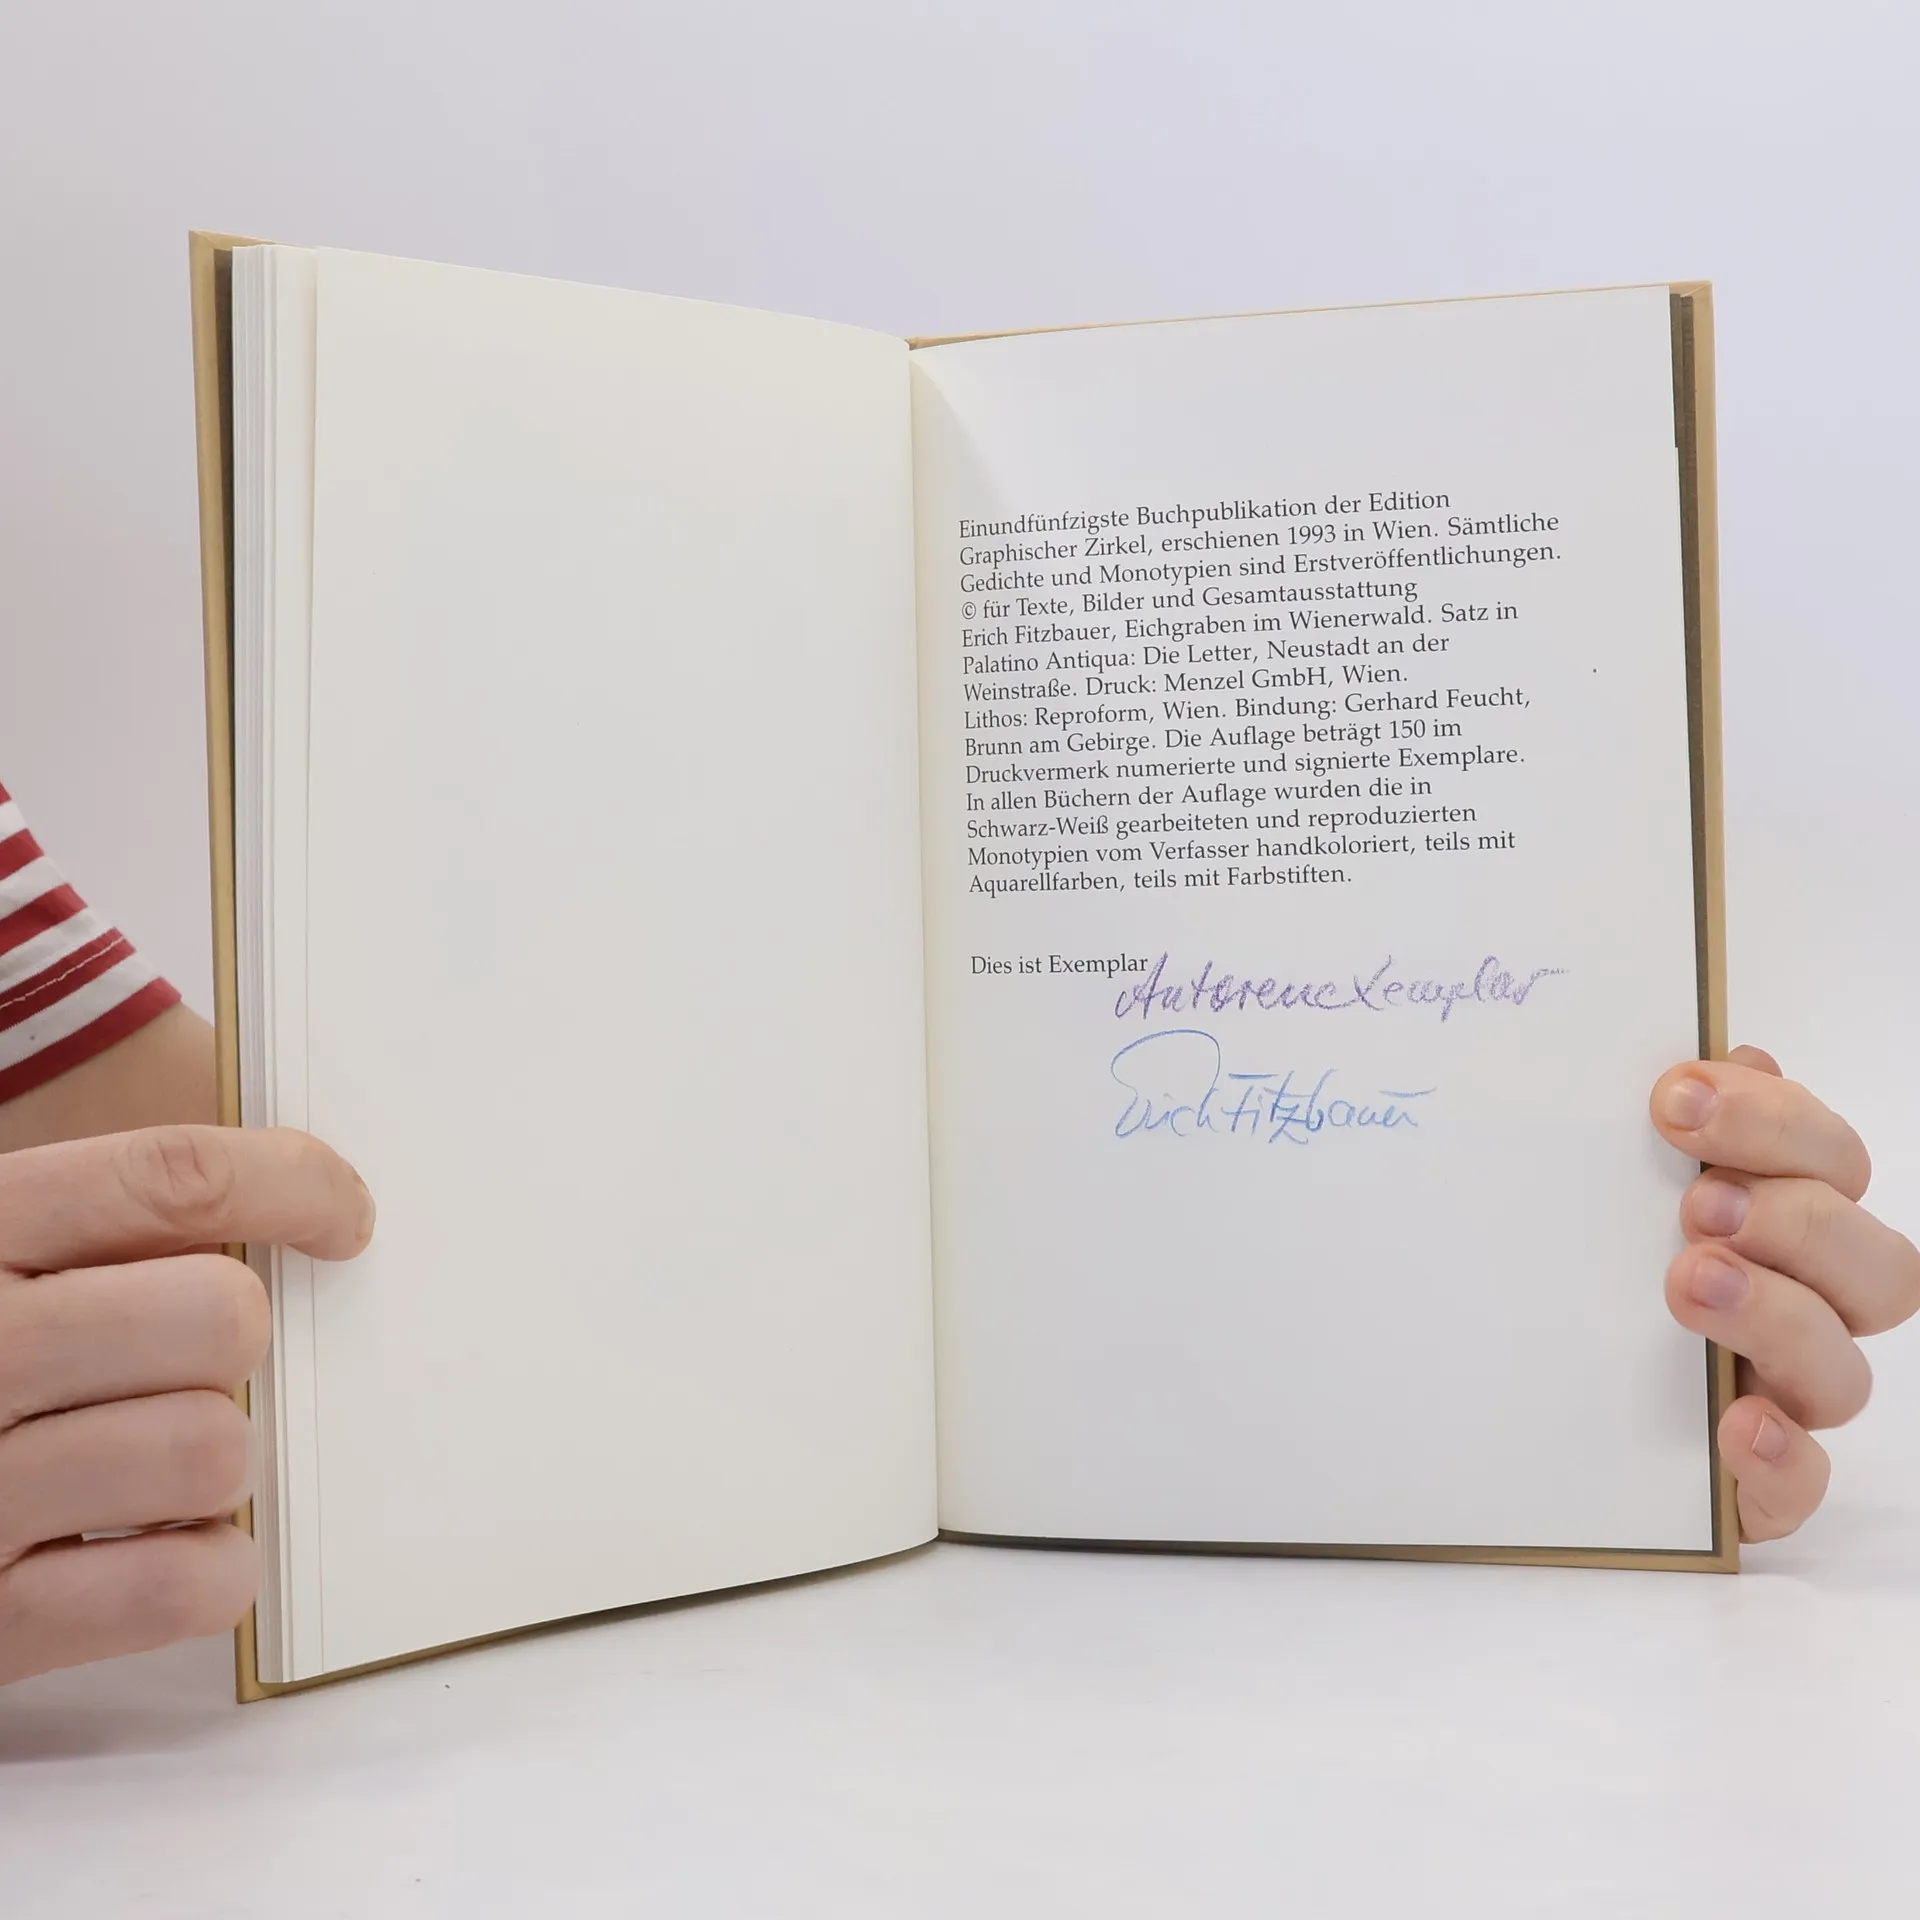 Einundfünfzigste Buchpublikation der Edition
Graphischer Zirkel, erschienen 1993 in Wien. Sämtliche
Gedichte und Monotypien sind Erstveröffentlichungen.
© für Texte, Bilder und Gesamtausstattung
Erich Fitzbauer, Eichgraben im Wienerwald. Satz in
Palatino Antiqua: Die Letter, Neustadt an der
Weinstraße. Druck: Menzel GmbH, Wien.
Lithos: Reproform, Wien. Bindung: Gerhard Feucht,
Brunn am Gebirge. Die Auflage beträgt 150 im
Druckvermerk numerierte und signierte Exemplare.
In allen Büchern der Auflage wurden die in
Schwarz-Weiß gearbeiteten und reproduzierten
Monotypien vom Verfasser handkoloriert, teils mit
Aquarellfarben, teils mit Farbstiften.
Dies ist Exemplar Autorenexemplar
Erich Fitzbauer